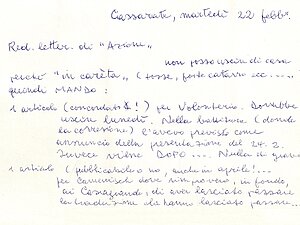 Cassarate, martedì 22 febb.
Red. letter. di "Azione"
non posso uscire di casa
perché "in carèta" (tosse, forte catarro ecc.....)
quindi MANDO:
1 articolo (concordato!) per Volontario. Dovrebbe
uscire lunedì. Nella battitura (donde
la correzione) l'avevo previsto come
annuncio della presentazione del 24.2.
Invece viene DOPO... Nulla di grave
1 articolo (pubblicatelo o no, anche in aprile!...
per Comenisch dove rimprovero, in fondo,
ai Casagrande, di aver lasciato passare
la traduzione che hanno lasciato passare...